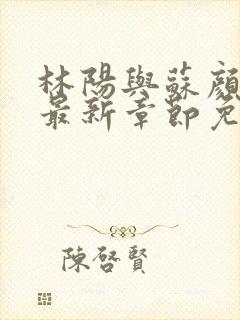 林陽與蘇顔
最新章節免
陳啓賢